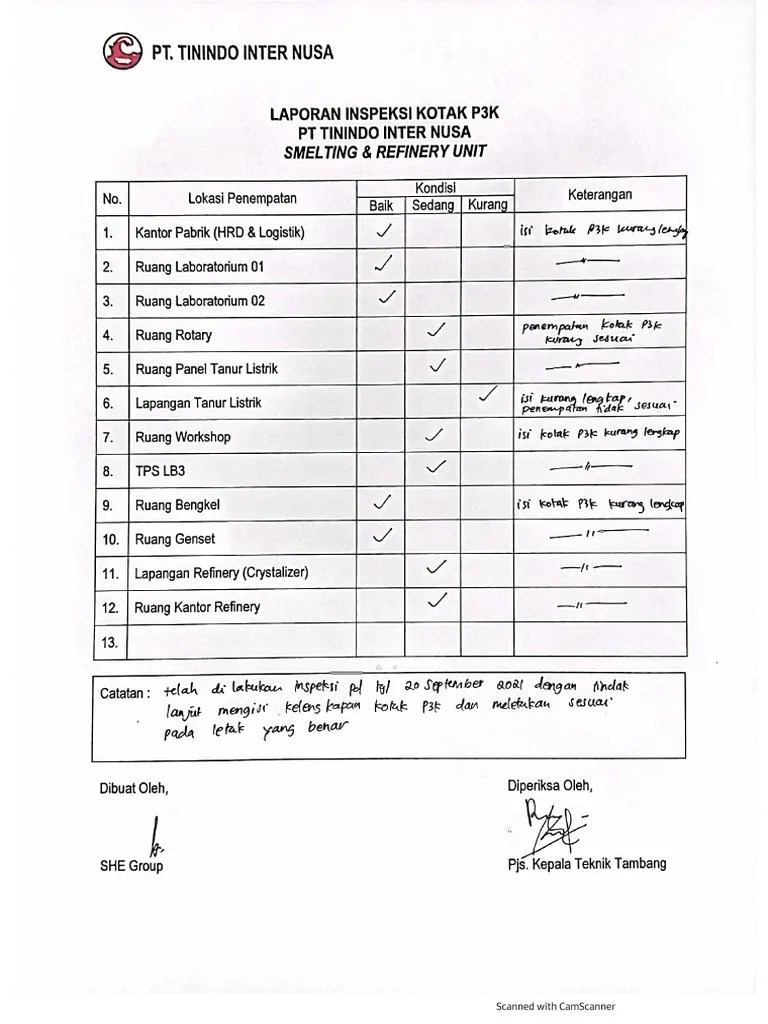 PT. TININDO INTER NUSA
LAPORAN INSPEKSI KOTAK P3K
PT TININDO INTER NUSA
SMELTING & REFINERY UNIT
No. Lokasi Penempatan Kondisi Keterangan
Baik Sedang Kurang
1. Kantor Pabrik (HRD & Logistik) ✓ isi kotak P3K kurang lengkap
2. Ruang Laboratorium 01 ✓ —〃—
3. Ruang Laboratorium 02 ✓ —〃—
4. Ruang Rotary ✓ penempatan kotak P3K
kurang sesuai
5. Ruang Panel Tanur Listrik ✓ —〃—
6. Lapangan Tanur Listrik ✓ isi kurang lengkap,
penempatan tidak sesuai.
7. Ruang Workshop ✓ isi kotak P3K kurang lengkap
8. TPS LB3 ✓ —〃—
9. Ruang Bengkel ✓ isi kotak P3K kurang lengkap
10. Ruang Genset ✓ —〃—
11. Lapangan Refinery (Crystalizer) ✓ —〃—
12. Ruang Kantor Refinery ✓ —〃—
13.
Catatan : telah di lakukan inspeksi pd tgl 20 September 2021 dengan tindak
lanjut mengisi kelengkapan kotak P3K dan meletakan sesuai
pada letak yang benar
Dibuat Oleh, Diperiksa Oleh,
SHE Group Pjs. Kepala Teknik Tambang
Scanned with CamScanner